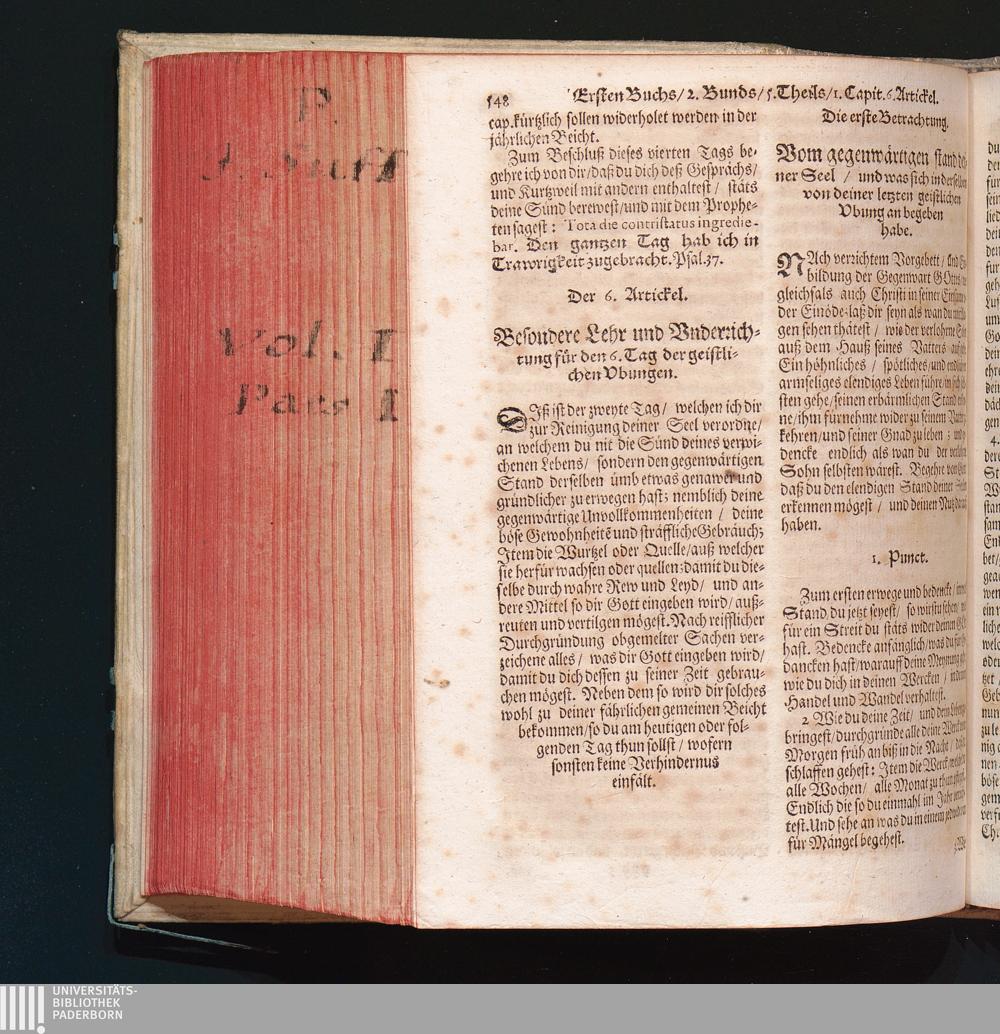 P.
J. Suff
Vol. I
Pars I
548 Ersten Buchs/ 2. Bunds/ 5. Theils/ 1. Capit. 6. Artickel.
cap. kürtzlich sollen widerholet werden in der
jährlichen Beicht.
Zum Beschluß dieses vierten Tags be-
gehre ich von dir/ daß du dich deß Gesprächs/
und Kurtzweil mit andern enthaltest/ stäts
deine Sünd berewest/ und mit dem Prophe-
ten sagest: Tota die contristatus ingredie-
bar. Den gantzen Tag hab ich in
Trawrigkeit zugebracht. Psal. 37.
Der 6. Artickel.
Besondere Lehr und Vnderrich-
tung für den 6. Tag der geistli-
chen Vbungen.
DIß ist der zweyte Tag/ welchen ich dir
zur Reinigung deiner Seel verordne/
an welchem du nit die Sünd deines verwi-
chenen Lebens/ sondern den gegenwärtigen
Stand derselben umb etwas genawer und
gründlicher zu erwegen hast; nemblich deine
gegenwärtige Unvollkommenheiten/ deine
böse Gewohnheitē und sträffliche Gebräuch;
Item die Wurtzel oder Quelle/ auß welcher
sie herfür wachsen oder quellen: damit du die-
selbe durch wahre Rew und Leyd/ und an-
dere Mittel so dir Gott eingeben wird/ auß-
reuten und vertilgen mögest. Nach reifflicher
Durchgründung obgemelter Sachen ver-
zeichene alles/ was dir Gott eingeben wird/
damit du dich dessen zu seiner Zeit gebrau-
chen mögest. Neben dem so wird dir solches
wohl zu deiner jährlichen gemeinen Beicht
bekommen/ so du am heutigen oder fol-
genden Tag thun sollst/ wofern
sonsten keine Verhindernus
einfält.
Die erste Betrachtung.
Vom gegenwärtigen stand dei-
ner Seel/ und was sich in derselben
von deiner letzten geistlichen
Vbung an begeben
habe.
NAch verzichtem Vorgebett/
bildung der Gegenwart GOttes
gleichfals auch Christi in seiner
der Einöde laß dir seyn als wan du
gen sehen thätest/ wie der verlohrne
auß dem Hauß seines Vatters
Ein höhnliches/ spötliches/ und
armseliges elendiges Leben führe/
sten gehe/ seinen erbärmlichen Stand
ne/ ihm fürnehme wider zu seinem Vatter
kehren/ und seiner Gnad zu leben;
dencke endlich als wan du der
Sohn selbsten wärest. Begehre von
daß du den elendigen Stand deiner
erkennen mögest/ und deinen Nutz
haben.
1. Punct.
Zum ersten erwege und bedencke/
Stand du jetzt seyest/ so wirstu sehen/
für ein Streit du stäts wider deinen
hast. Bedencke anfänglich/ was du für
dancken hast/ warauff deine Meynung
wie du dich in deinen Wercken/
Handel und Wandel verhaltest.
2 Wie du deine Zeit/ und dein
bringest/ durchgründe alle deine
Morgen früh an biß in die Nacht/
schlaffen gehest: Item die Werck
alle Wochen/ alle Monat zu thun
Endlich die so du einmahl im Jahr
test. Und sehe an was du in einem
für Mängel begehest.
UNIVERSITÄTS-
BIBLIOTHEK
PADERBORN